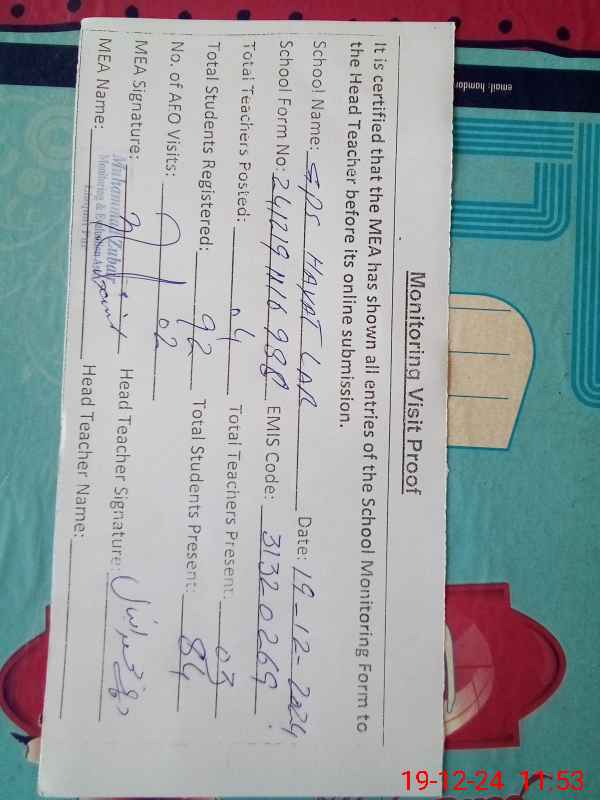 Monitoring Visit Proof
It is certified that the MEA has shown all entries of the School Monitoring Form to
the Head Teacher before its online submission.
School Name: GPS HAYAT LAR Date: 19-12-2024
School Form No: EMIS Code: 31320269
Total Teachers Posted: 04 Total Teachers Present: 03
Total Students Registered: 92 Total Students Present: 84
No. of AEO Visits: 02
MEA Signature: Head Teacher Signature:
MEA Name: Muhammad Head Teacher Name:
Monitoring &
email:
19-12-24 11:53